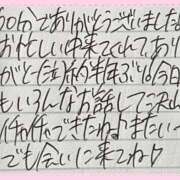 60分でありがとうございました
お忙しい中来てくれてあり
がと 約半年ぶり 今日
もいろんなお話して沢山
イチャイチャできたね♪またい
でも会いに来てね♡